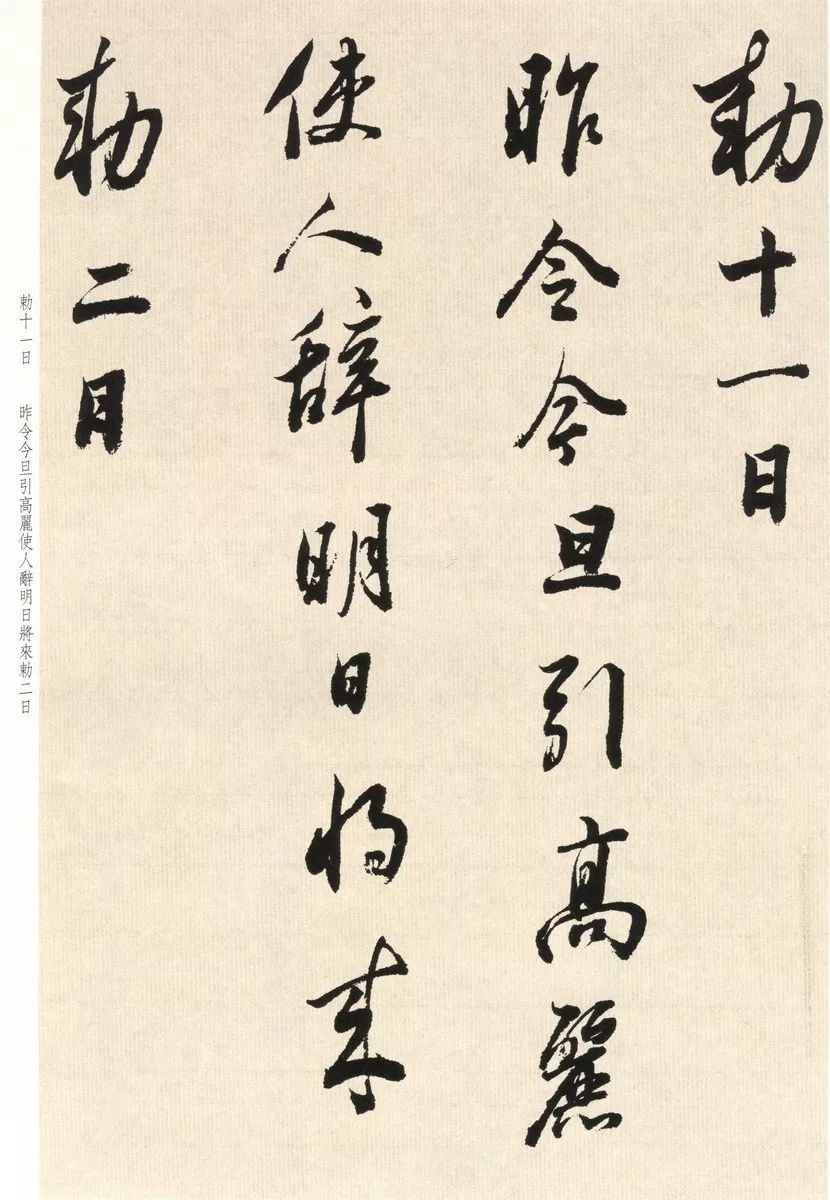 勅十一日
昨令今旦引高麗
使人辞明日将来
勅二月
勅十一日 昨令今旦引高麗使人辭明日將來勅二日